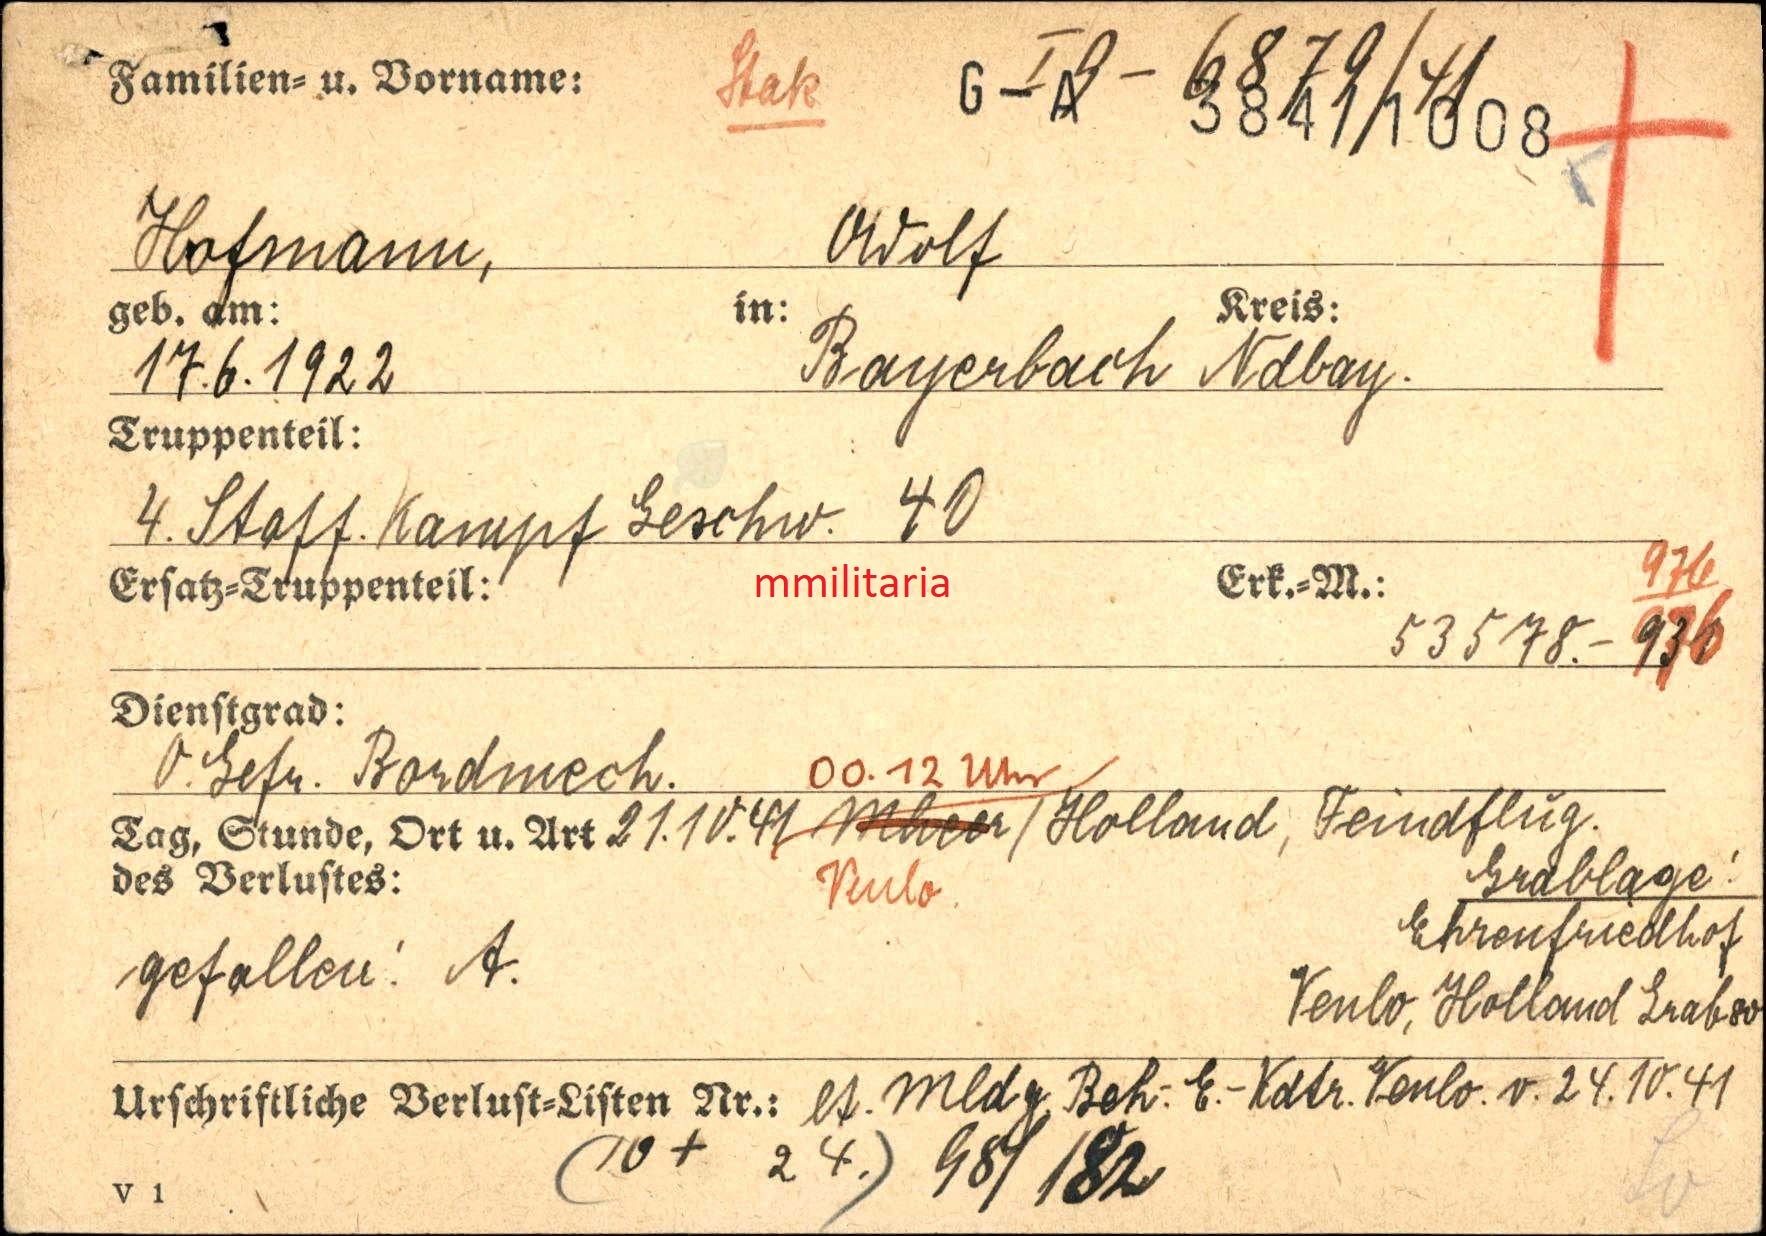 Familien= u. Vorname: Stak G-A I 9 - 6879/41
3841/1008
Hofmann, Adolf
geb. am: in: Kreis:
17.6.1922 Bayerbach Ndbay.
Truppenteil:
4. Staff. Kampf Geschw. 40
Ersatz=Truppenteil: mmilitaria Erk.=M.: 976
53578.-
Dienstgrad:
O.Gefr. Bordmech. 00.12 Uhr
Tag, Stunde, Ort u. Art 21.10.41 / Holland, Feindflug.
des Verlustes: Venlo Grablage!
Ehrenfriedhof
gefallen! A.
Venlo, Holland Grab 80
Urschriftliche Verlust=Listen Nr.: Mldg. Beh. E.-Kdtr. Venlo. v. 24.10.41
(10 + 24.) 98/182
V 1